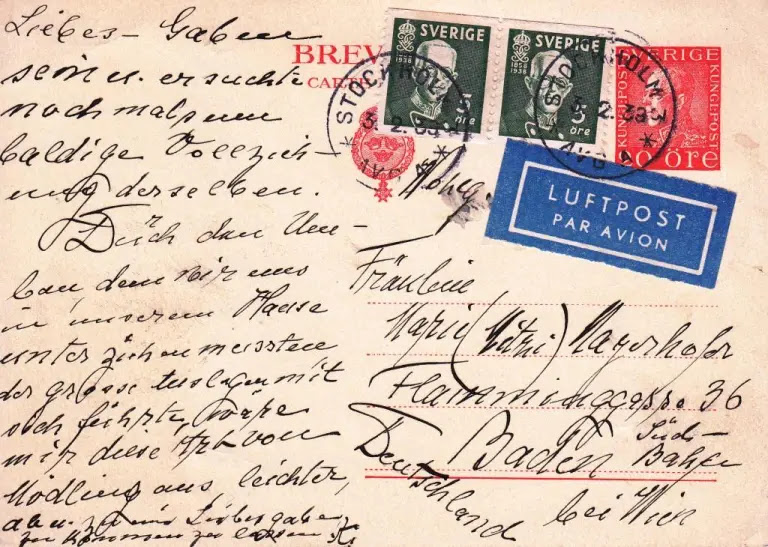 Liebes-Gaben
sein u. ersuchte
nochmals um
baldige Vollzieh-
ung derselben.
Durch den Um-
bau, dem wir uns
in unserem Hause
unterziehen mussten
der grosse Auslagen mit
sich führte, wäre
mir diese Art von
Mödling aus leichter,
Liebesgabe
zu kommen zu lassen
BREV
CARTE
SVERIGE
1858
1938
5
öre
SVERIGE
1858
1938
5
öre
SVERIGE
KUNGL·POST
KUNGL·POST
20 ÖRE
STOCKHOLM
3.2.39
AVG
STOCKHOLM
3.2.39
AVG
LUFTPOST
PAR AVION
Fräulein
Marie (Mitzi) Mayerhofer
Flammingasse 36
Baden Süd-
Bahn
bei Wien
Deutschland